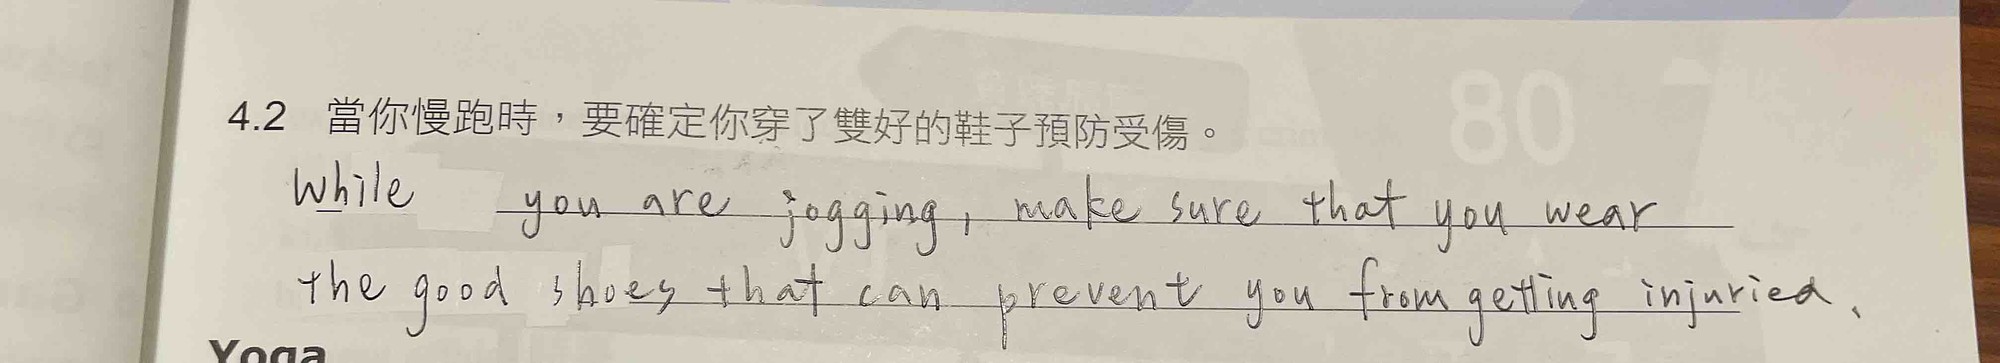 4.2 當你慢跑時，要確定你穿了雙好的鞋子預防受傷。
While you are jogging, make sure that you wear
the good shoes that can prevent you from getting injuried.
Yoga